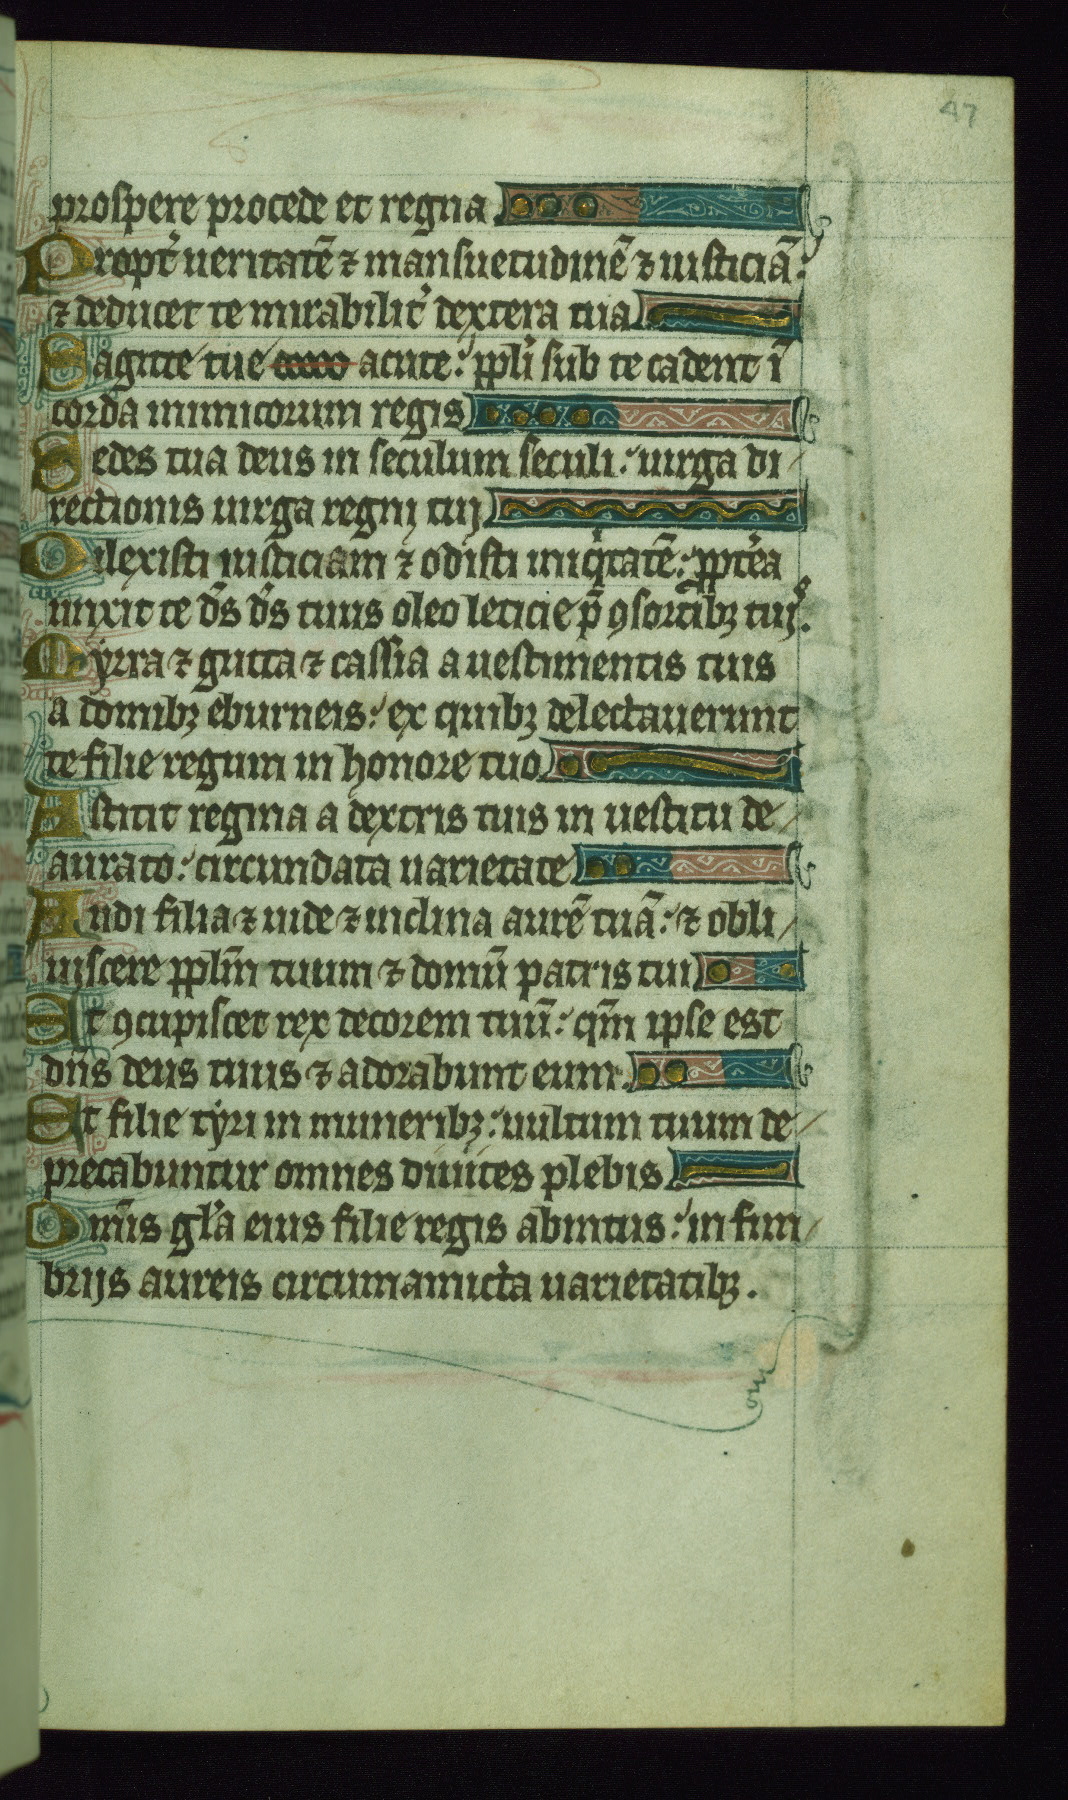 47
prospere procede et regna
Propt᷑ ueritatē ⁊ mansuetudinē ⁊ iusticiā:
⁊ deducet te mirabilit᷑ dextera tua
Sagitte tue acute: ppl̓i sub te cadent ī
corda inimicorum regis
Sedes tua deus in seculum seculi: uirga di
rectionis uirga regnj tuj
Dilexisti iusticiam ⁊ odisti iniqͥtatē: ꝓpt̓ea
unxit te d̄s d̄s tuus oleo leticie p̄ ꝯsortibꝫ tuis.
Myrra ⁊ gutta ⁊ cassia a uestimentis tuis
a domibꝫ eburneis: ex quibꝫ delectauerunt
te filie regum in honore tuo
Astitit regina a dextris tuis in uestitu de
aurato: circundata uarietate
Audi filia ⁊ uide ⁊ inclina aurē tuā: ⁊ obli
uiscere pplm̄ tuum ⁊ domū patris tui
Et ꝯcupiscet rex decorem tuū: qm̄ ipse est
dn̄s deus tuus ⁊ adorabunt eum.
Et filie tyri in muneribꝫ: uultum tuum de
precabuntur omnes diuites plebis
Omīs gl̓a eius filie regis abintus: in fim
brijs aureis circumamicta uarietatibꝫ.